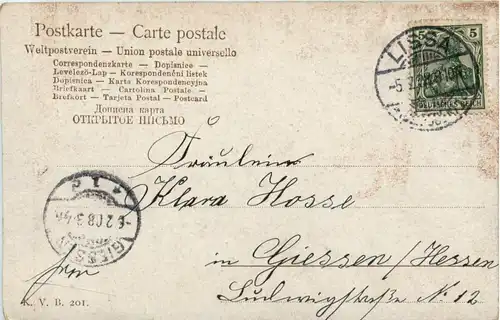 Postkarte - Carte postale
Weltpostverein - Union postale universelle
Correspondenzkarte - Dopisnice -
Levelező-Lap - Korespondenční lístek
Dopisnica - Karta Korespondencyjna
Briefkaart - Cartolina Postale -
Brefkort - Tarjeta Postal - Postcard
Дописна карта
ОТКРЫТОЕ ПИСЬМО
5
DEUTSCHES REICH
LISSA
Fräulein
Klara Hosse
in Giessen / Hessen
Ludwigstraße N. 12
GIESSEN
K. V. B. 201.